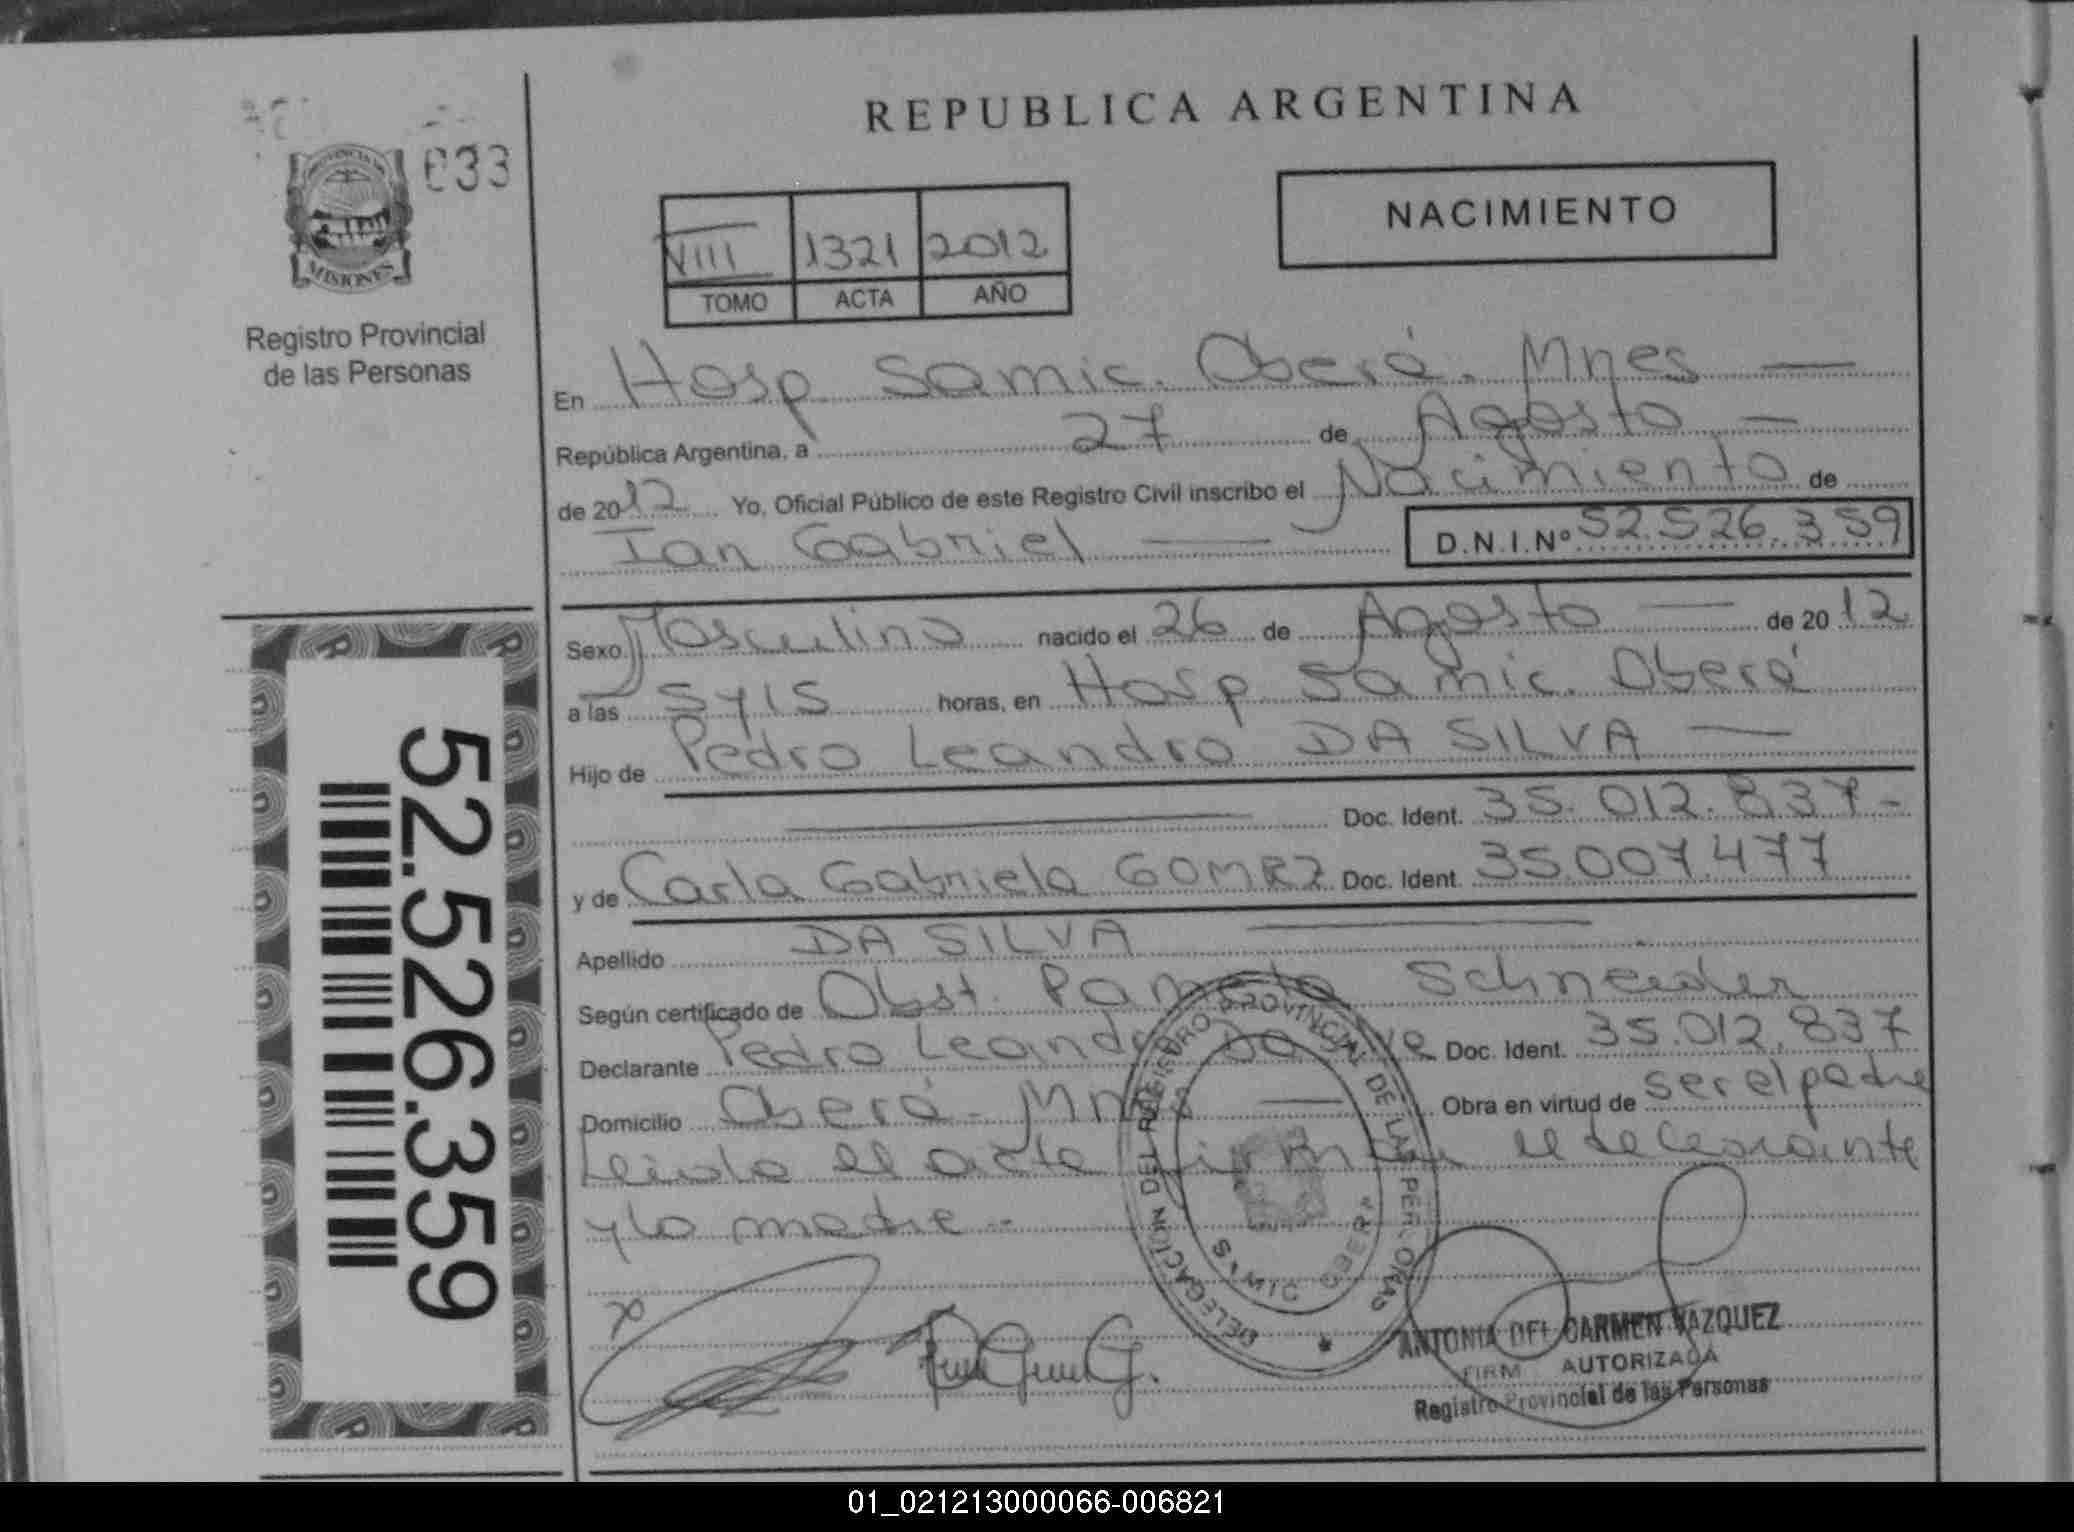 REPUBLICA ARGENTINA
033
PROVINCIA DE
MISIONES
Registro Provincial
de las Personas
NACIMIENTO
VIII 1321 2012
TOMO ACTA AÑO
En Hosp Samic. Oberá. Mnes
República Argentina, a 27 de Agosto
de 2012 Yo, Oficial Público de este Registro Civil inscribo el Nacimiento de
Ian Gabriel D.N.I.Nº 52.526.359
Sexo Masculino nacido el 26 de Agosto de 2012
a las 5 y 15 horas, en Hosp Samic. Oberá
Hijo de Pedro Leandro DA SILVA
Doc. Ident. 35.012.837-
y de Carla Gabriela GOMEZ Doc. Ident. 35.007.477
Apellido DA SILVA
Según certificado de Obst. Pamela Schneider
Declarante Pedro Leandro Da Silva Doc. Ident. 35.012.837
Domicilio Oberá - Mnes Obra en virtud de ser el padre
Leida el acta firman el declarante
y la madre -
52.526.359
DELEGACION DEL REGISTRO PROVINCIAL DE LAS PERSONAS
SAMIC OBERA
ANTONIA DEL CARMEN VAZQUEZ
FIRMA AUTORIZADA
Registro Provincial de las Personas
01_021213000066-006821